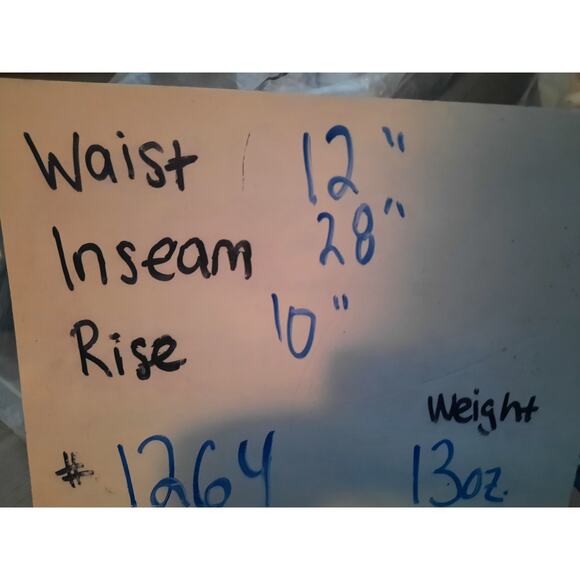 Waist 12"
Inseam 28"
Rise 10"
Weight
# 1264 13oz.